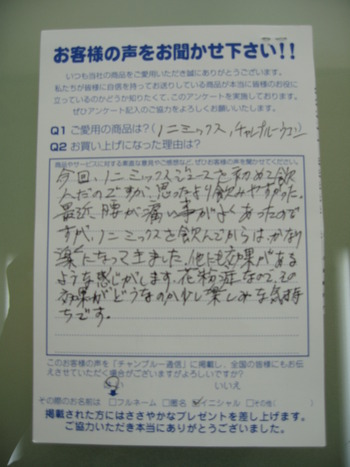 お客様の声をお聞かせ下さい!!
いつも当社の商品をご愛用いただき誠にありがとうございます。
私たちが皆様に自信を持ってお送りしている商品が本当に皆様のお役に
立っているのかどうか知りたくて、このアンケートを実施しております。
ぜひアンケート記入のご協力をよろしくお願いいたします。
Q1 ご愛用の商品は?(ノニミックス,チャンプルーウコン
Q2 お買い上げになった理由は?
商品やサービスに対する率直な意見やご感想など、ぜひお客様の声を聞かせてください。
今回、ノニミックスジュースを初めて飲
んだのですが、思ったより飲みやすかった。
最近、腰が痛い事がよくあったので
すが、ノニミックスを飲んでからは、かなり
楽になって来ました。他にも効果がある
ような感じがします。花粉症なので、その
効果がどうなのか少し楽しみな気持
ちです。
このお客様の声を「チャンプルー通信」に掲載し、全国の皆様にもお伝
えさせていただく場合がございますがよろしいですか?
はい いいえ
その際のお名前は □フルネーム □匿名 ☑イニシャル □その他( )
掲載された方にはささやかなプレゼントを差し上げます。
ご協力いただき本当にありがとうございました。